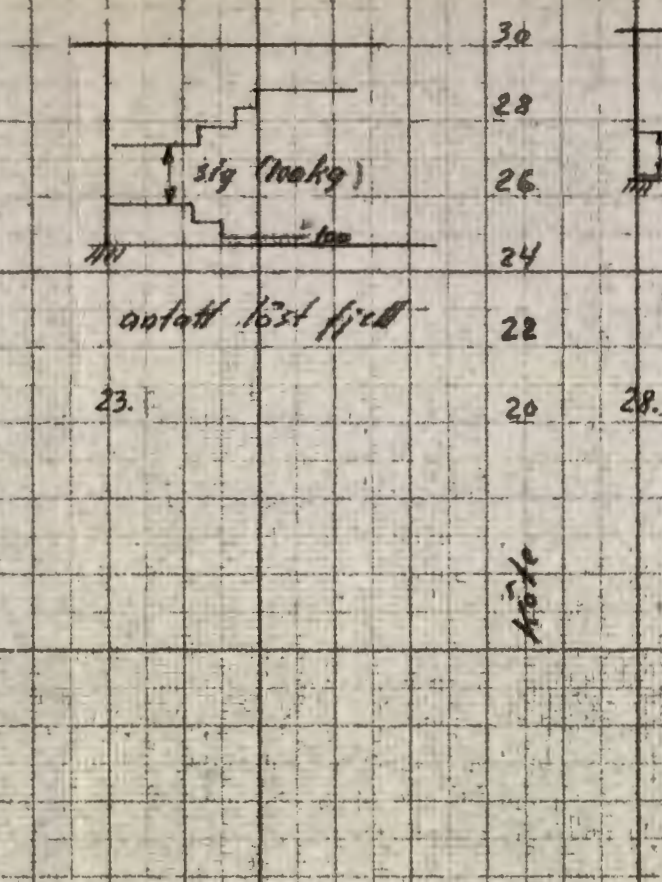 30
28
sig (100kg)
26
100
24
antatt löst fjell
22
23.
20
28.
Köte